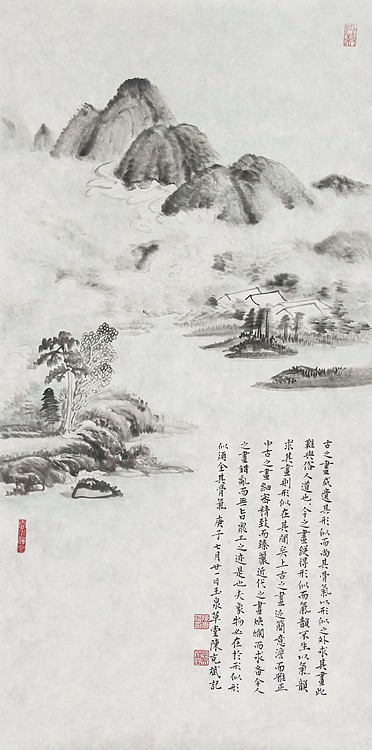 古之畫或遺其形似而尚其骨氣以形似之外求其畫此
難與俗人道也今之畫縱得形似而氣韻不生以氣韻
求其畫則形似在其間矣上古之畫迹簡意澹而雅正
中古之畫細密精致而臻麗近代之畫煥爛而求備今人
之畫錯亂而無旨衆工之迹是也夫象物必在於形似形
似須全其骨氣 庚子七月廿一日玉泉草堂陳克斌記